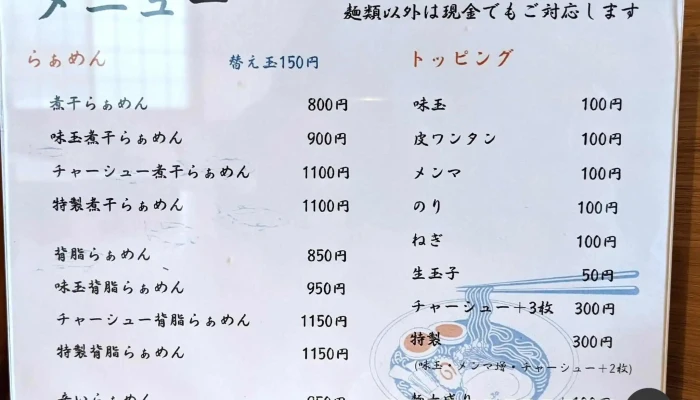 メニュー
麺類以外は現金でもご対応します
らぁめん 替え玉150円
煮干らぁめん 800円
味玉煮干らぁめん 900円
チャーシュー煮干らぁめん 1100円
特製煮干らぁめん 1100円
背脂らぁめん 850円
味玉背脂らぁめん 950円
チャーシュー背脂らぁめん 1150円
特製背脂らぁめん 1150円
辛いらぁめん 950円
トッピング
味玉 100円
皮ワンタン 100円
メンマ 100円
のり 100円
ねぎ 100円
生玉子 50円
チャーシュー+3枚 300円
特製 300円
(味玉・メンマ増・チャーシュー+2枚)
麺大盛り